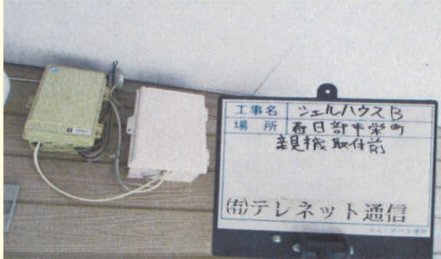 工事名 シェルハウスB
場所 春日部市栄町
親機取付前
(有)テレネット通信